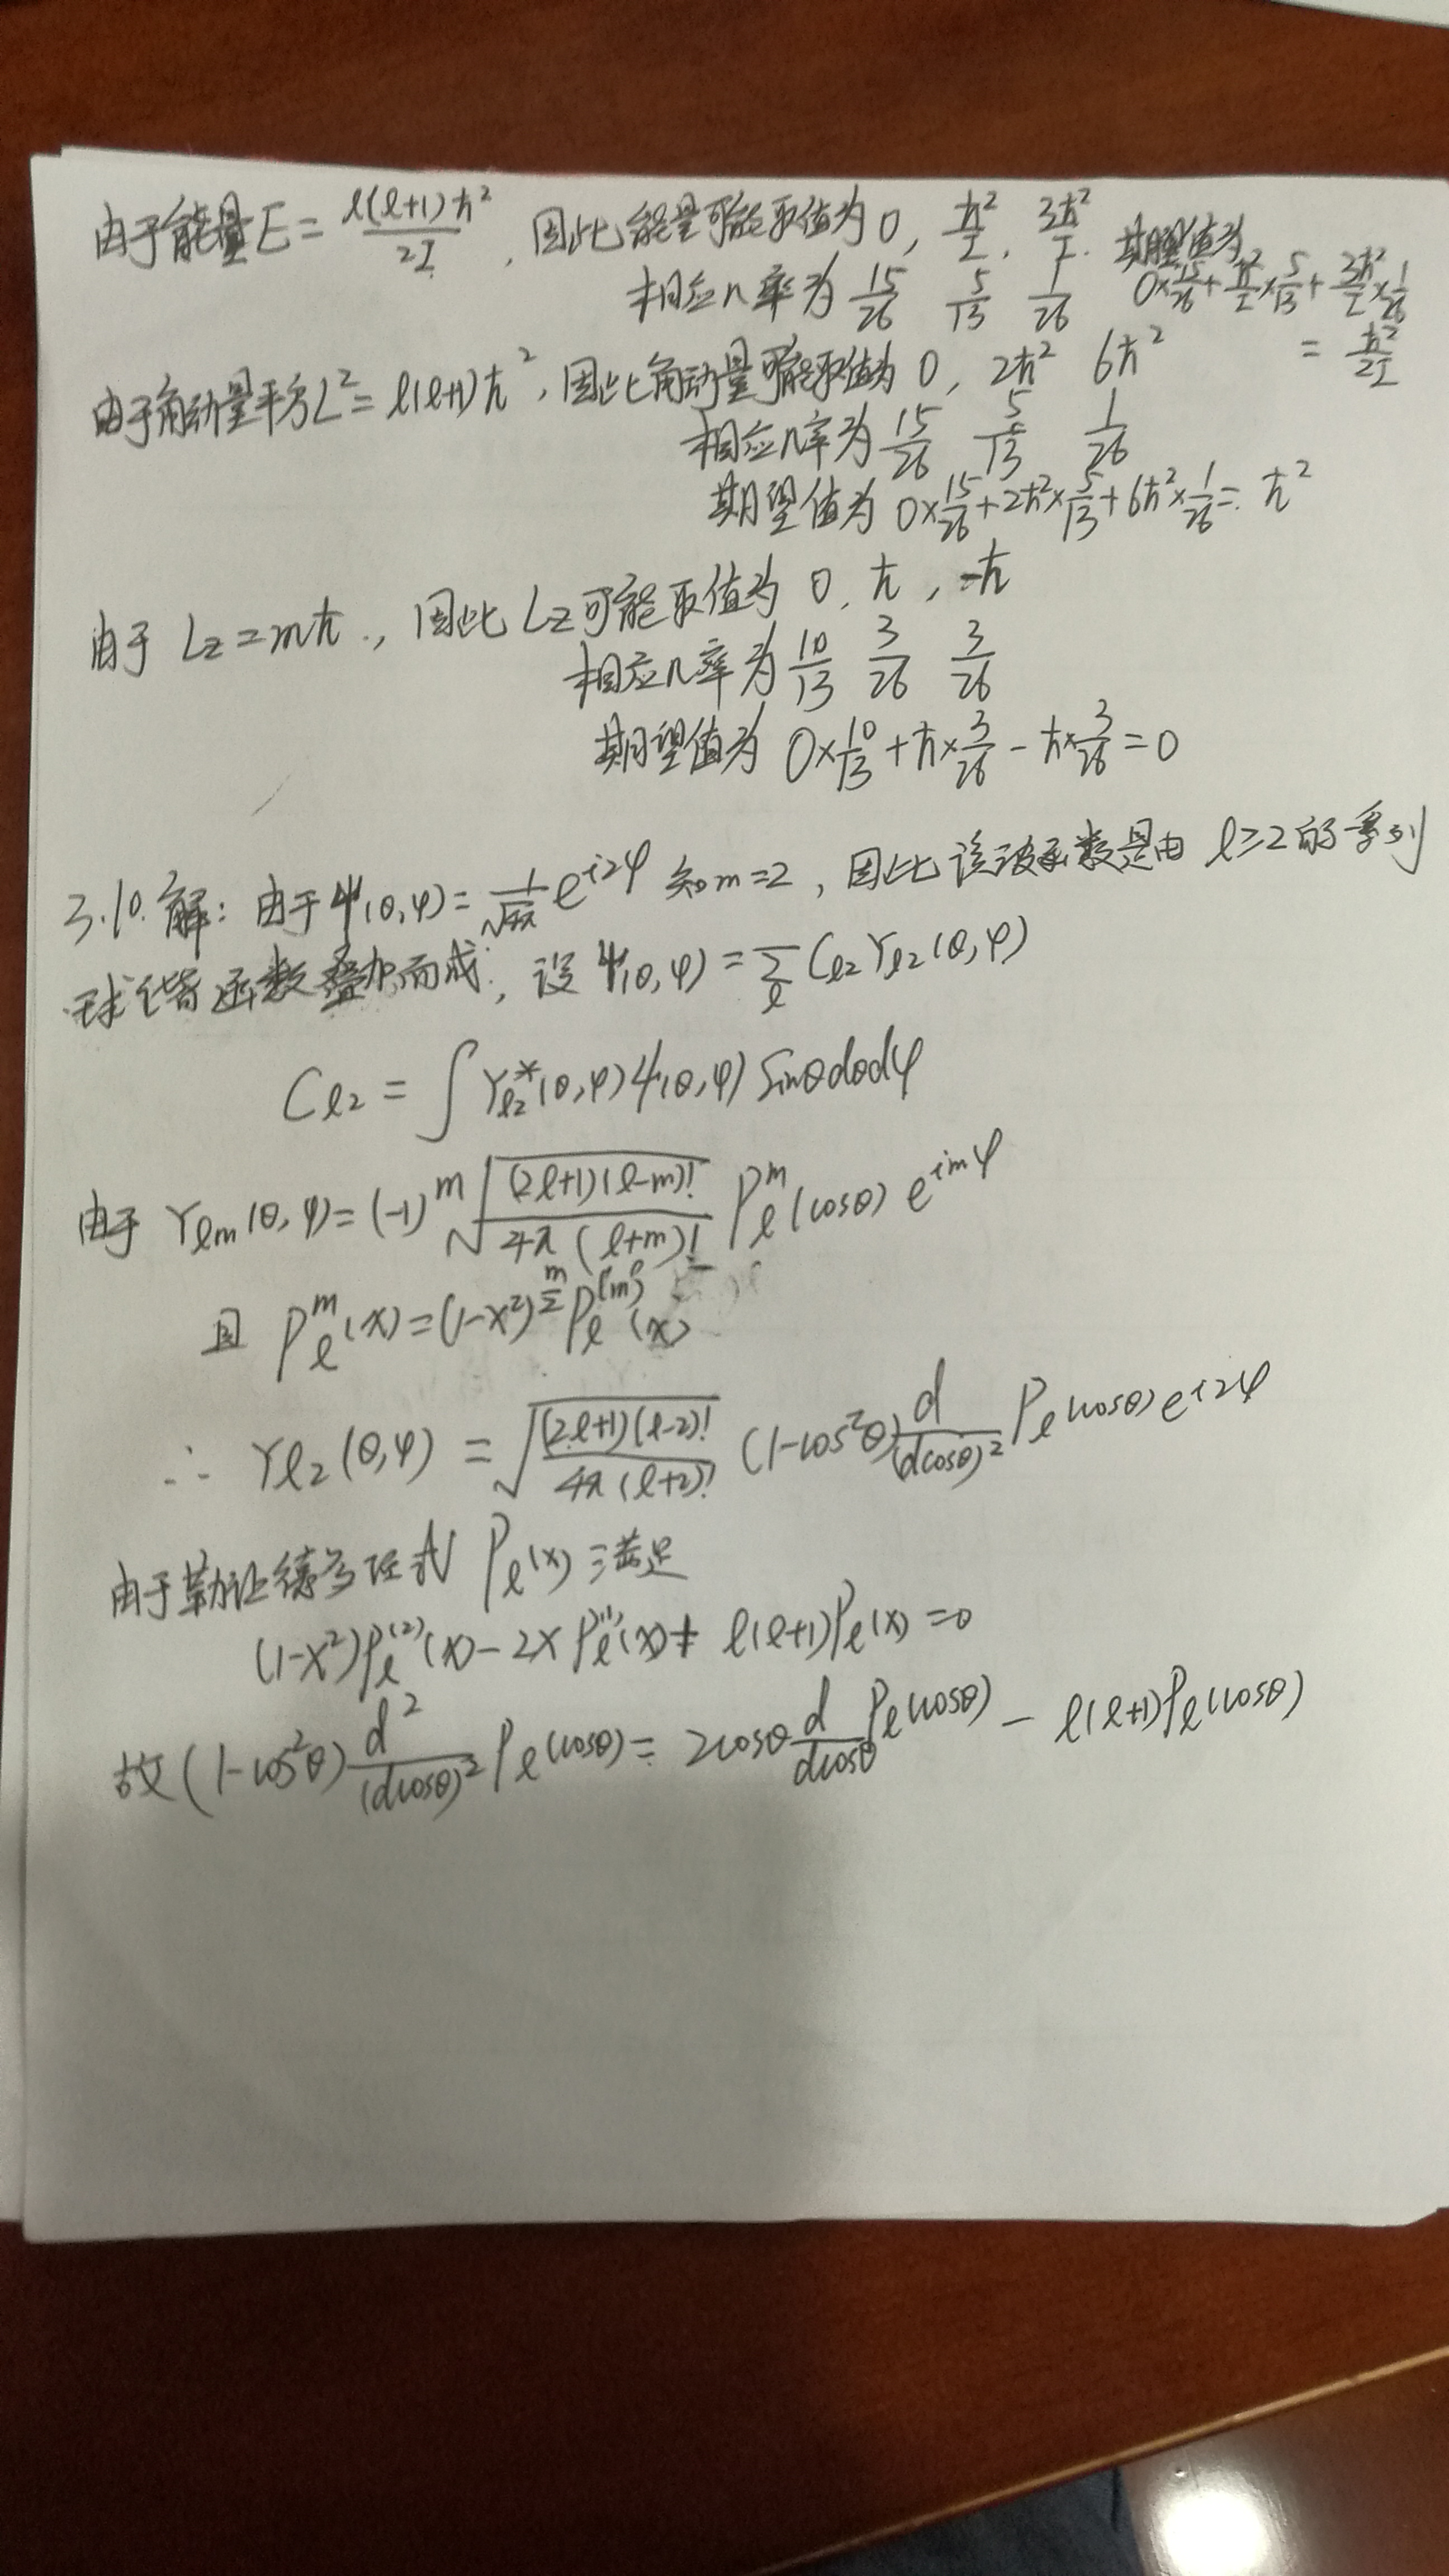 由于能量E = l(l+1)ħ²/2I, 因此能量可能取值为 0, ħ²/I, 3ħ²/I. 期望值为
相应几率为 15/26 5/13 1/26 0×15/26 + ħ²/I×5/13 + 3ħ²/I×1/26
= ħ²/2I
由于角动量平方L² = l(l+1)ħ², 因此角动量可能取值为 0, 2ħ² 6ħ²
相应几率为 15/26 5/13 1/26
期望值为 0×15/26 + 2ħ²×5/13 + 6ħ²×1/26 = ħ²
由于 Lz = mħ, 因此 Lz可能取值为 0, ħ, -ħ
相应几率为 10/13 3/26 3/26
期望值为 0×10/13 + ħ×3/26 - ħ×3/26 = 0
3.10. 解: 由于ψ(θ,φ) = 1/√4π e^{i2φ} 知 m=2, 因此该波函数是由 l≥2 的系列
球谐函数叠加而成, 设 ψ(θ,φ) = Σ_l C_{l2} Y_{l2}(θ,φ)
C_{l2} = ∫ Y_{l2}^*(θ,φ) ψ(θ,φ) sinθdθdφ
由于 Y_{lm}(θ,φ) = (-1)^m √((2l+1)(l-m)!/4π(l+m)!) P_l^m(cosθ) e^{imφ}
且 P_l^m(x) = (1-x²)^{m/2} P_l^{(m)}(x)
∴ Y_{l2}(θ,φ) = √((2l+1)(l-2)!/4π(l+2)!) (1-cos²θ) d/(dcosθ)² P_l(cosθ) e^{i2φ}
由于勒让德多项式 P_l(x) 满足
(1-x²)P_l^{(2)}(x) - 2x P_l^{(1)}(x) + l(l+1)P_l(x) = 0
故 (1-cos²θ) d²/(dcosθ)² P_l(cosθ) = 2cosθ d/dcosθ P_l(cosθ) - l(l+1)P_l(cosθ)